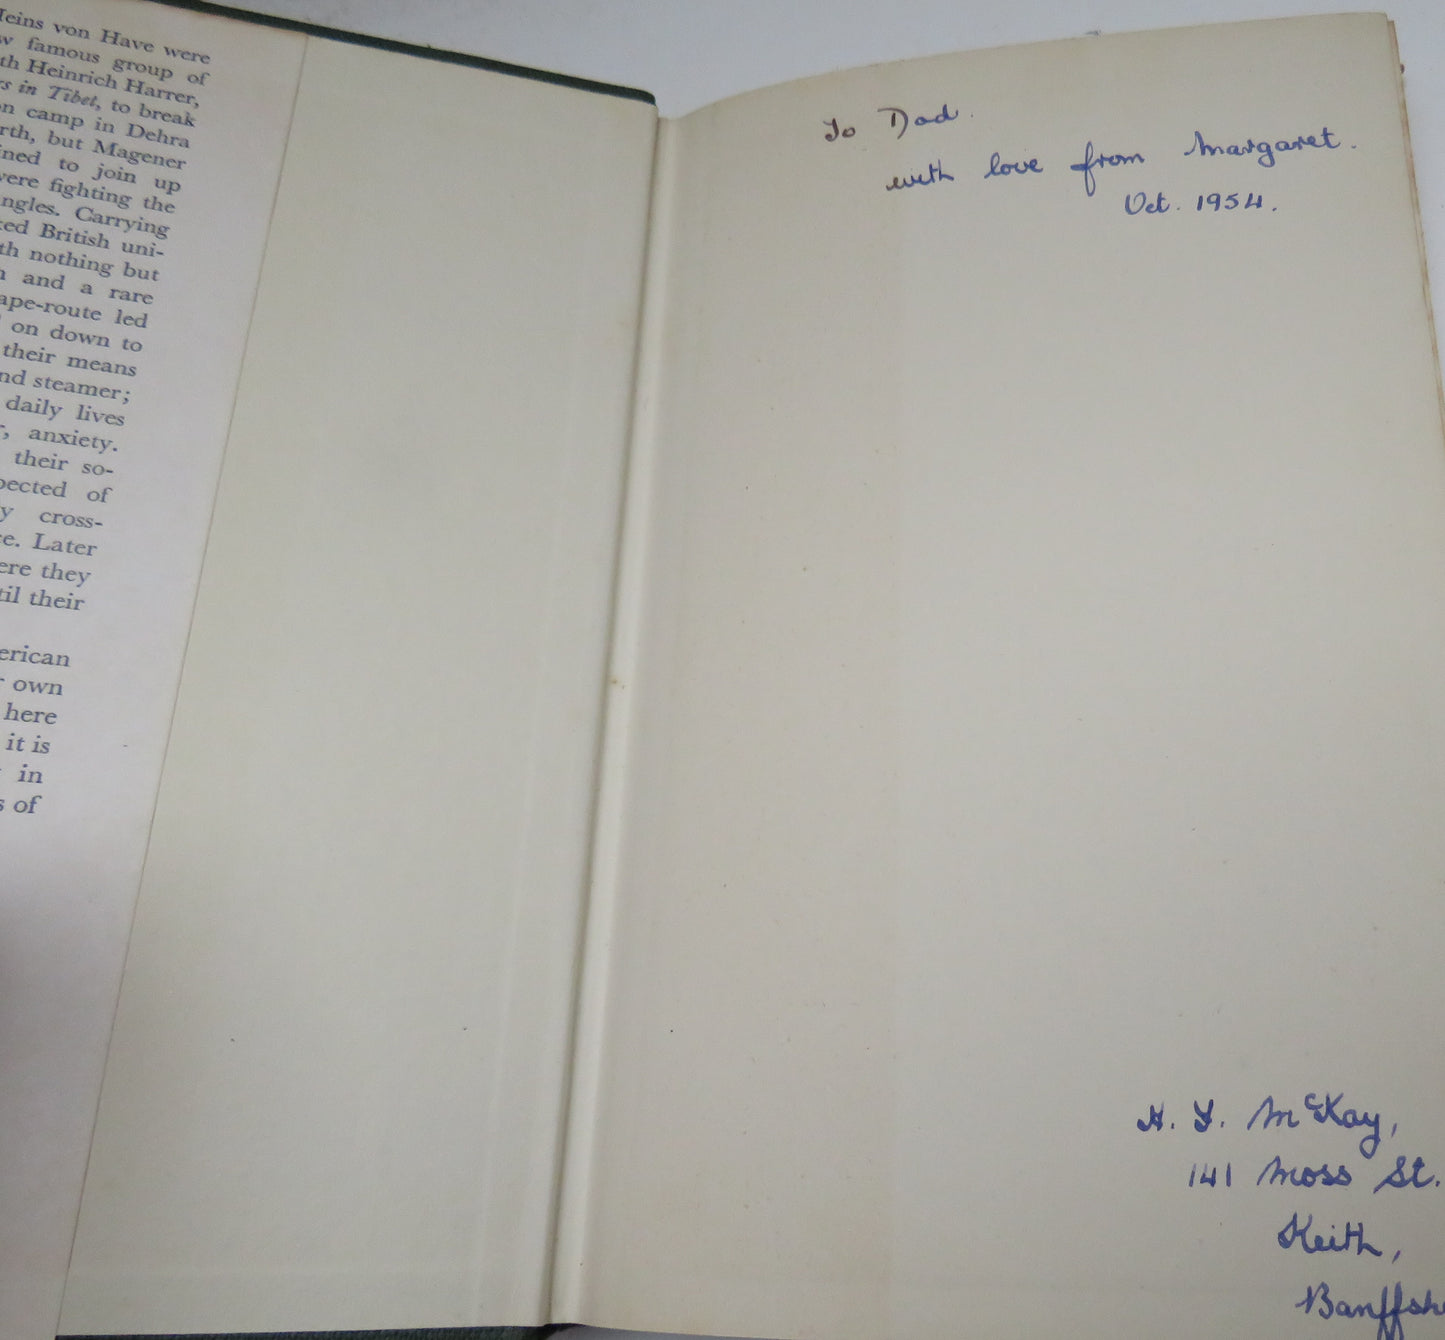 Heins von Have were
famous group of
Heinrich Harrer,
in Tibet, to break
camp in Dehra
but Magener
to join up
were fighting the
Carrying
British uni-
nothing but
and a rare
led
on down to
their means
steamer;
daily lives
anxiety.
their so-
of
cross-
Later
they
their
own
here
it is
in
of
To Dad.
with love from Margaret.
Oct. 1954.
McKay,
141 Moss St.
Keith,